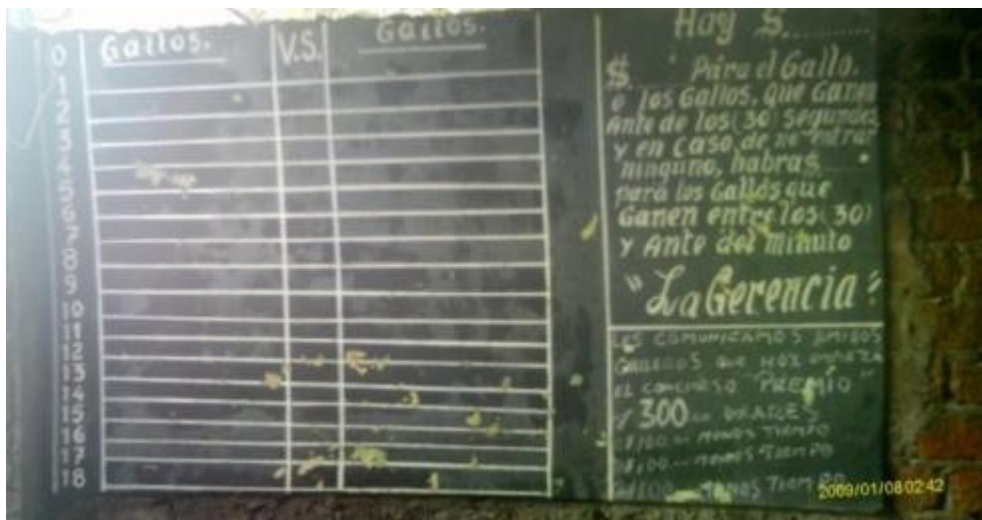 Gallos. V.S. Gallos.
0
1
2
3
4
5
6
7
8
9
10
11
12
13
14
15
16
17
18
Hay $.........
$ Para el Gallo,
o los Gallos, que Ganen
Ante de los (30) Segundos
y en caso de no entrar
ninguno, habra $
para los Gallos que
Ganen entre los (30)
y Ante del Minuto
"La Gerencia"
LES COMUNICAMOS AMIGOS
GALLEROS QUE HOY EMPIEZA
EL CONCURSO "PREMIO"
300
MENOS TIEMPO
MENOS TIEMPO
MENOS TIEMPO
2009/01/08 02:42